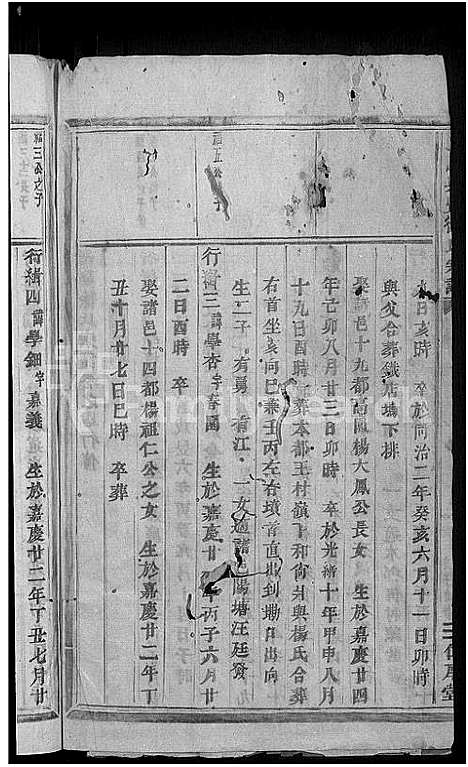 日亥時 卒於同治二年癸亥六月十一日卯時
與父合葬鐵店塢下排
娶諸邑十九都高霞楊大鳳公長女 生於嘉慶廿四
年己卯八月廿三日卯時 卒於光緒十年甲申八月
十九日酉時 葬本都王村嶺下和尚井與楊氏合葬
右首坐亥向巳兼壬丙左右墳首直出到塝田出向
生二子 有勇 有江 一女適諸 陽塘汪廷發
五公 子
行緒三諱學杏字春園 生於嘉慶廿 丙子六月廿
二日酉時 卒
娶諸邑十四都楊祖仁公之女 生於嘉慶廿二年丁
丑十月廿七日巳時 卒葬
三公之子
行緒四諱學鈿字嘉義 生於嘉慶廿二年丁丑七月廿